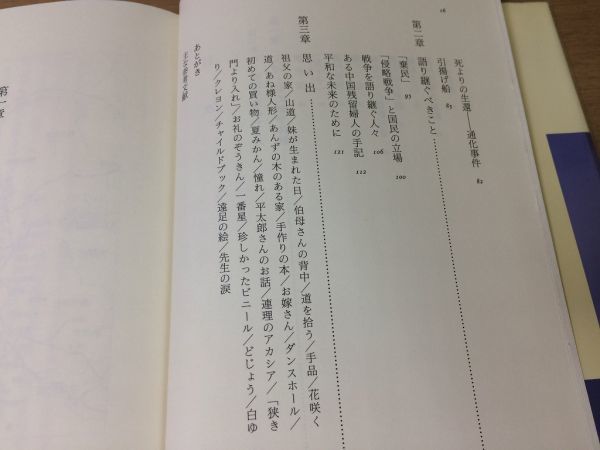 16
死よりの生還——通化事件 82
引揚げ船 85
第二章 語り継ぐべきこと
「棄民」 93
「侵略戦争」と国民の立場 100
戦争を語り継ぐ人々 106
ある中国残留婦人の手記 112
平和な未来のために 121
第三章 思い出
祖父の家／山道／妹が生まれた日／伯母さんの背中／道を拾う／手品／花咲く
道／あね様人形／あんずの木のある家／手作りの本／お嫁さん／ダンスホール／
初めての買い物／夏みかん／憧れ／平太郎さんのお話／連理のアカシア／「狭き
門より入れ」／お礼のぞうきん／一番星／珍しかったビニール／どじょう／白ゆ
り／クレヨン／チャイルドブック／遠足の絵／先生の涙
あとがき
主な参考文献
第一章